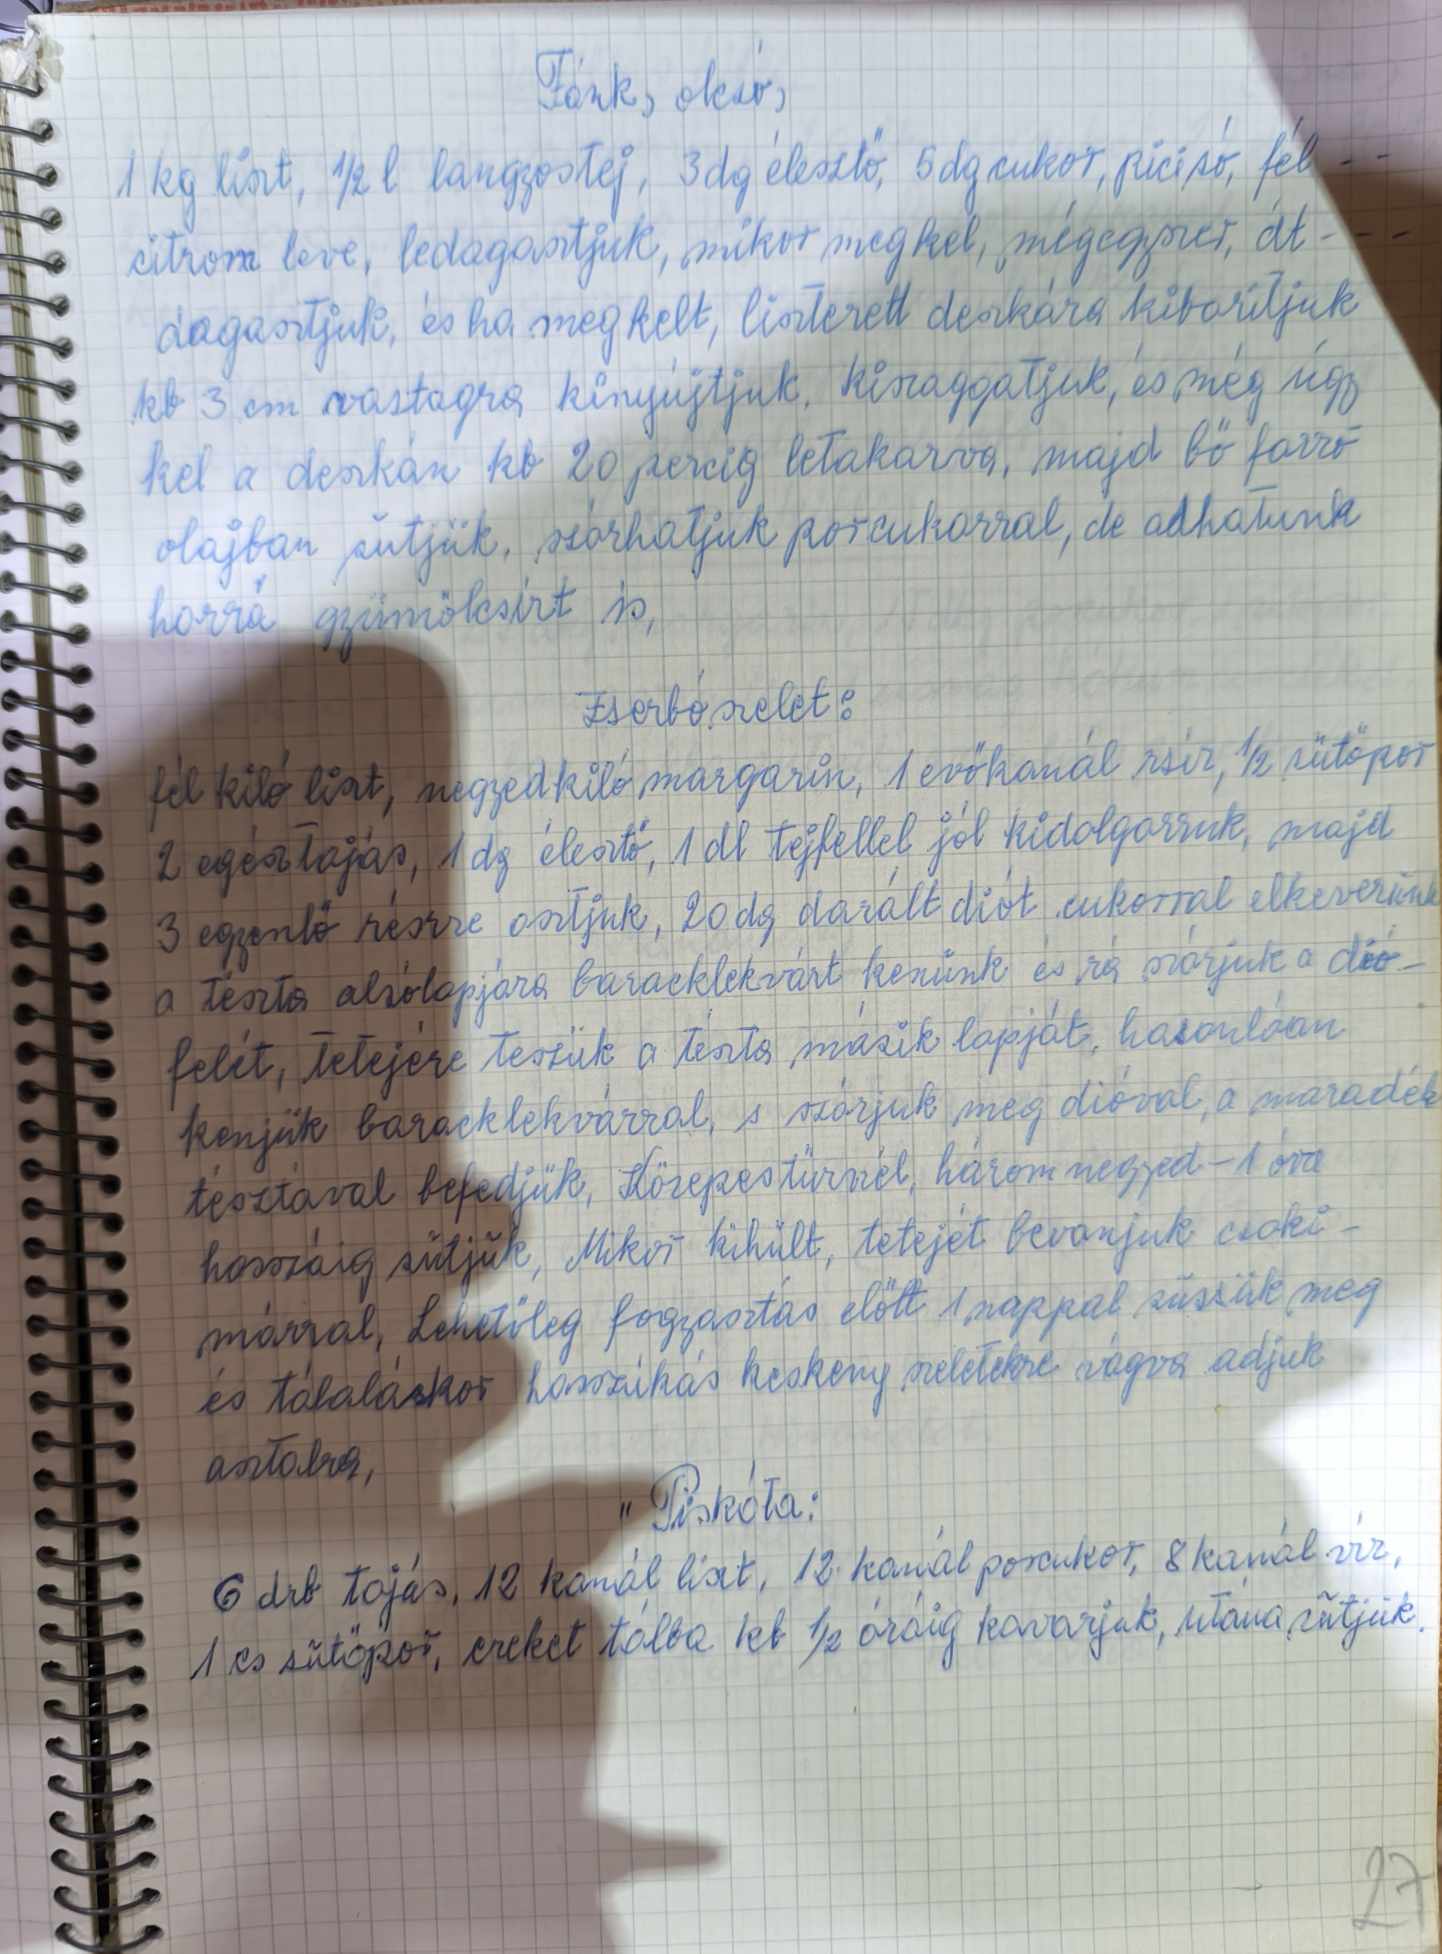 Fánk, olcsó,
1 kg liszt, 1/2 l langyostej, 3dg élesztő, 5dg cukor, picisó, fél - -
citrom leve, ledagasztjuk, mikor megkel, mégegyszer, át - - -
dagasztjuk, és ha megkelt, lisztezett deszkára kiborítjuk
kb 3 cm vastagra kinyújtjuk, kiszaggatjuk, és még úgy
kel a deszkán kb 20 percig letakarva, majd bő forró
olajban sütjük, szórhatjuk porcukorral, de adhatunk
hozzá gyümölcsízt is,
Zserbó szelet:
fél kiló liszt, negyedkiló margarin, 1 evőkanál zsír, 1/2 sütőpor
2 egésztojás, 1 dg élesztő, 1 dl tejfellel jól kidolgozzuk, majd
3 egyenlő részre osztjuk, 20 dg darált diót cukorral elkeverünk
a tészta alsólapjára baracklekvárt kenünk és rá szórjuk a dió-
felét, tetejére teszük a tészta másik lapját, hasonlóan
kenjük baracklekvárral, s szórjuk meg dióval, a maradék
tésztával befedjük, Közepestűznél, háromnegyed - 1 óra
hosszáig sütjük, Mikor kihült, tetejét bevonjuk csoki -
mázzal, Lehetőleg fogyasztás előtt 1 nappal süssük meg
és tálaláskor hosszúkás keskeny szeletekre vágva adjuk
asztalra,
" Piskóta:
6 drb tojás, 12 kanál liszt, 12 kanál porcukor, 8 kanál víz,
1 cs sütőpor, ezeket tálba kb 1/2 óráig kavarjuk, utána sütjük.
27